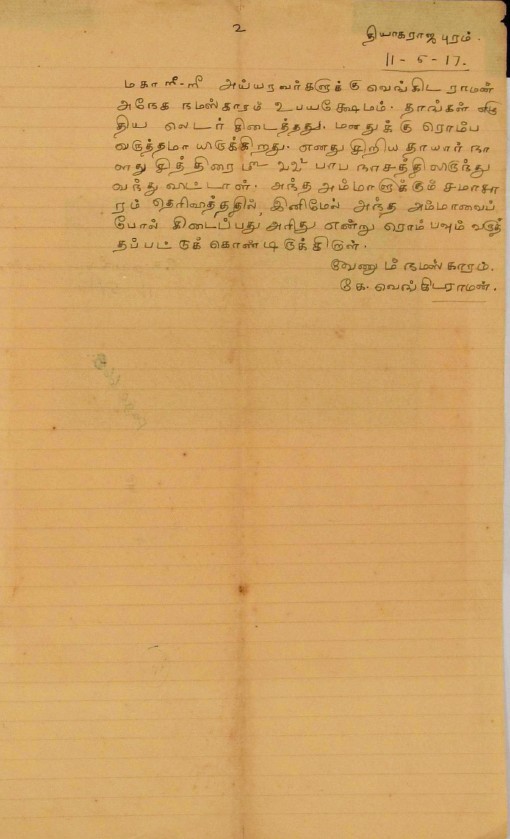 உ
தியாகராஜபுரம்.
11-5-17.
மகாஶ்ரீ-ஶ்ரீ அய்யரவர்களுக்கு வெங்கிட ராமன்
அநேக நமஸ்காரம் உபயக்ஷேமம். தாங்கள் எழு
திய லெடர் கிடைத்தது. மனதுக்கு ரொம்ப
வருத்தமா யிருக்கிறது. எனது சிறிய தாயார் நா
ளது சித்திரை ௴ ௨௨௳ பாப நாசத்திலிருந்து
வந்து விட்டாள். அந்த அம்மாளுக்கும் சமாசா
ரம் தெரிவித்ததில் இனிமேல் அந்த அம்மாவைப்
போல் கிடைப்பது அரிது என்று ரொம்பவும் வருத்
தப்பட்டுக் கொண்டிருக்கிறாள்.
வேணும் நமஸ்காரம்.
கே. வெங்கிடராமன்.